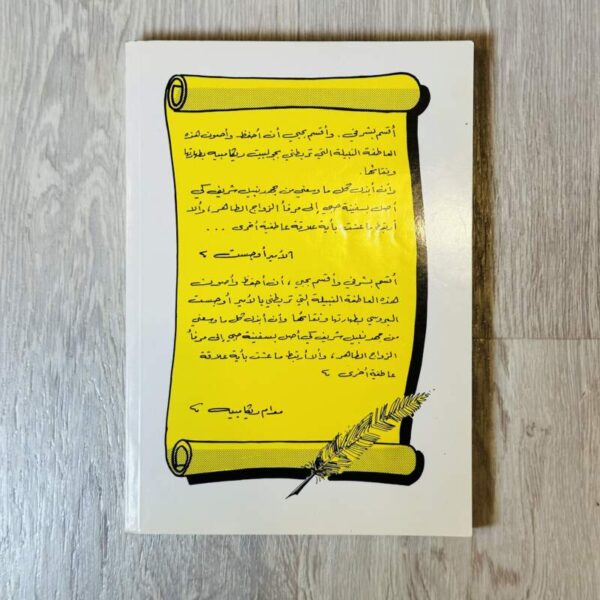 أقسم بشرفي . وأقسم بحبي أن أحفظ وأصون هذه
العاطفة النبيلة التي تربطني بجولييت ريكامييه بطهارتها
ونقائها .
وأن أبذل كل ما وسعني من جهد نبيل شريف كي
أصل بسفينة حبي إلى مرفأ الزواج الطاهر ، وألا
أرتبط ما عشت بأية علاقة عاطفية أخرى ...
الأمير أوجست
أقسم بشرفي وأقسم بحبي ، أن أحفظ وأصون
هذه العاطفة النبيلة التي تربطني بالأمير أوجست
البروسي بطهارتها ونقائها وأن أبذل كل ما وسعني
من جهد نبيل شريف كي أصل بسفينة حبي إلى مرفأ
الزواج الطاهر ، وألا أرتبط ما عشت بأية علاقة
عاطفية أخرى
مدام ريكامييه